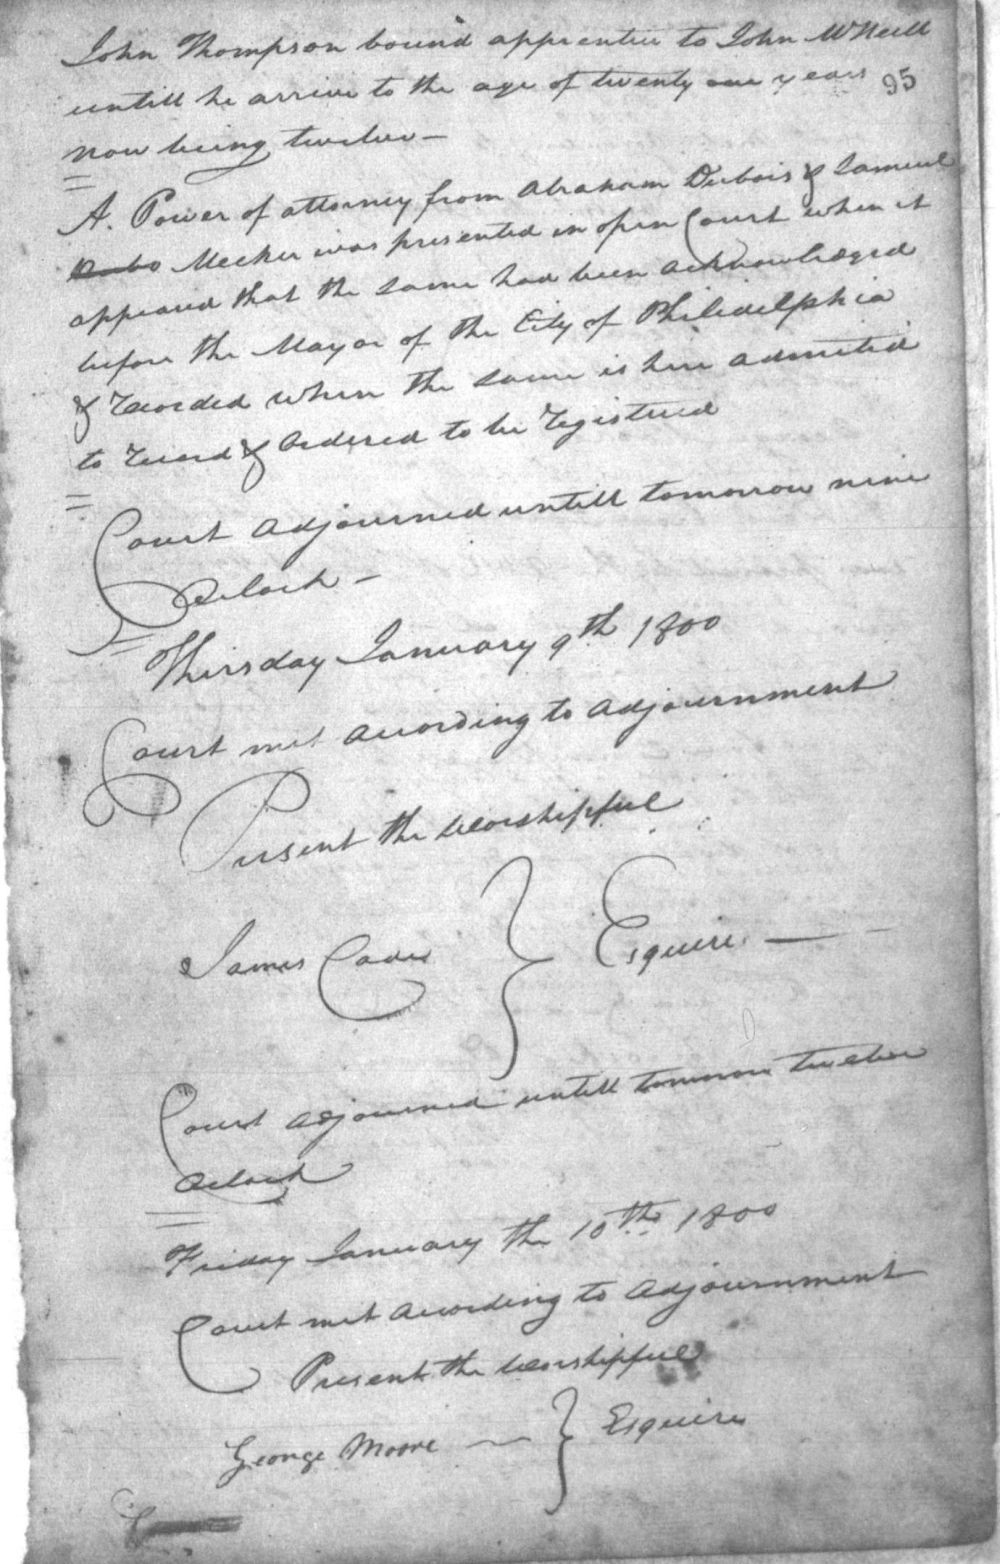 John Thompson bound apprentice to John McNeill
untill he arrive to the age of twenty one years
95
now being twelve —
A. Power of attorney from Abraham Dubois & Samuel
Meeker was presented in open Court when it
appeared that the same had been acknowledged
before the Mayor of the City of Philidelphia
& Recorded when the same is here admitted
to Record & Ordered to be Registered
Court adjourned untill tomorrow nine
Oclock —
Thirsday January 9th 1800
Court met according to adjournment
Present the Worshipfull
James Esquire
Court adjourned untill tomorrow twelve
Oclock
Friday January the 10th 1800
Court met according to adjournment
Present the Worshipfull
George Moore — Esquire